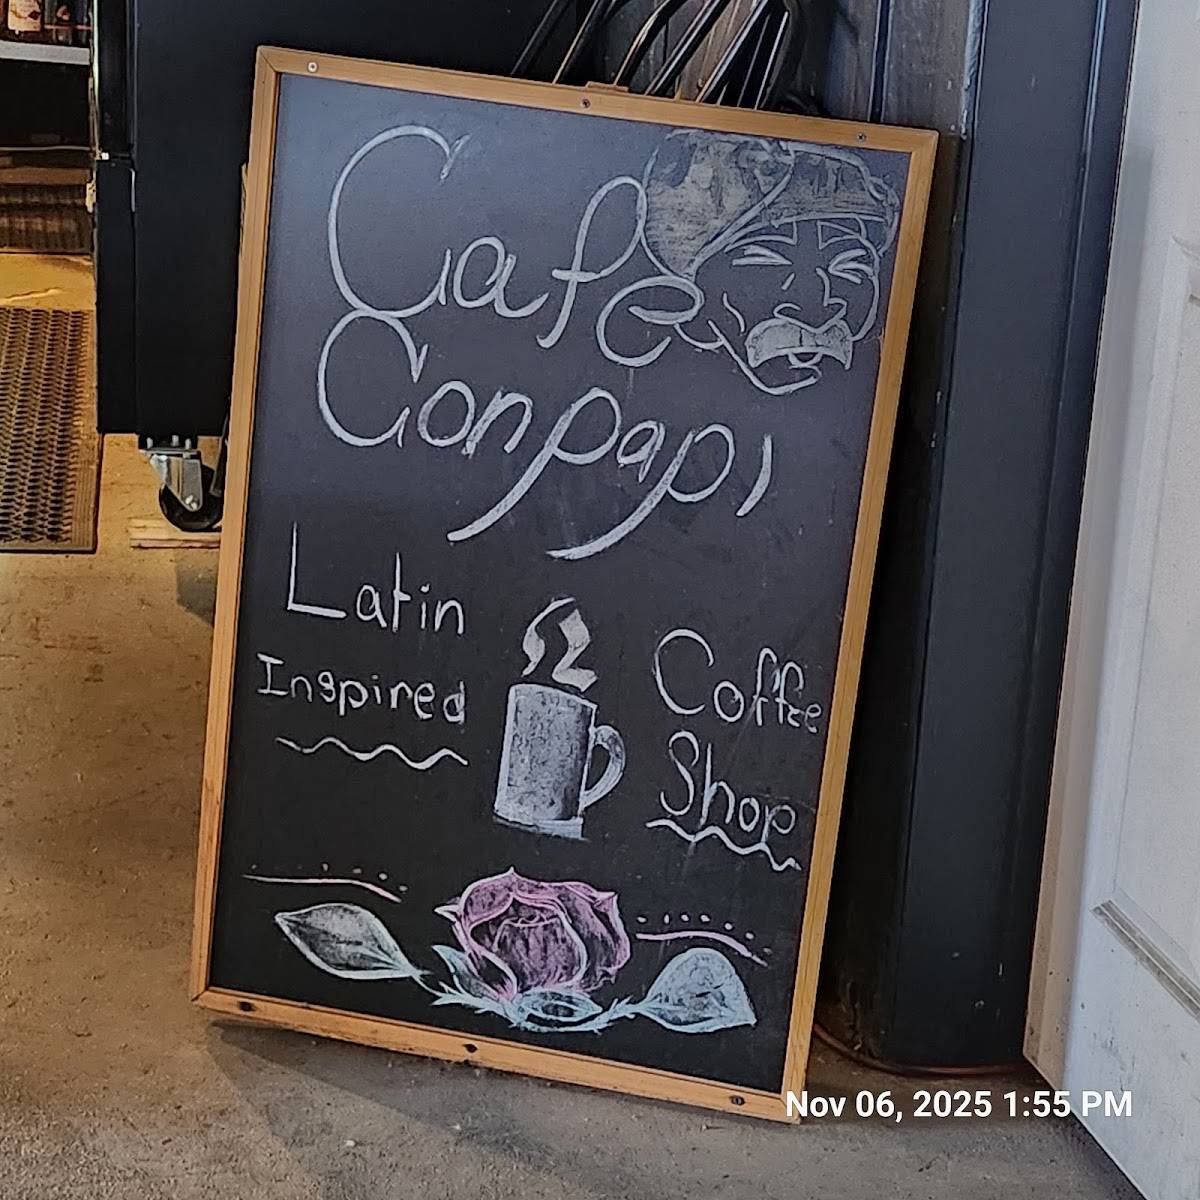 Cafe
Conpapi
Latin
Inspired
Coffee
Shop
Nov 06, 2025 1:55 PM